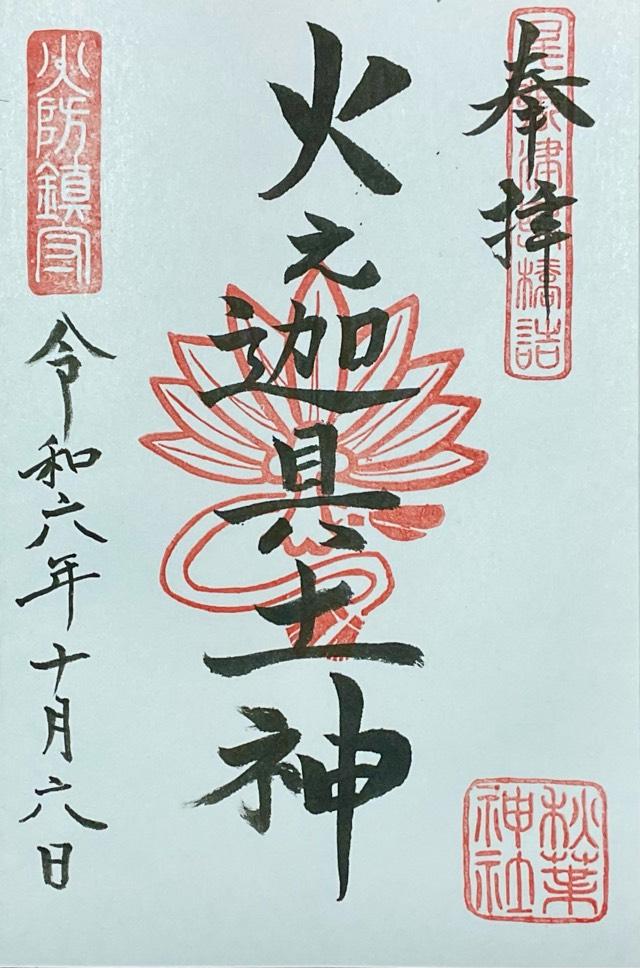 奉拝
橋詰
秋葉
神社
火之迦具土神
火防鎮守
令和六年十月六日